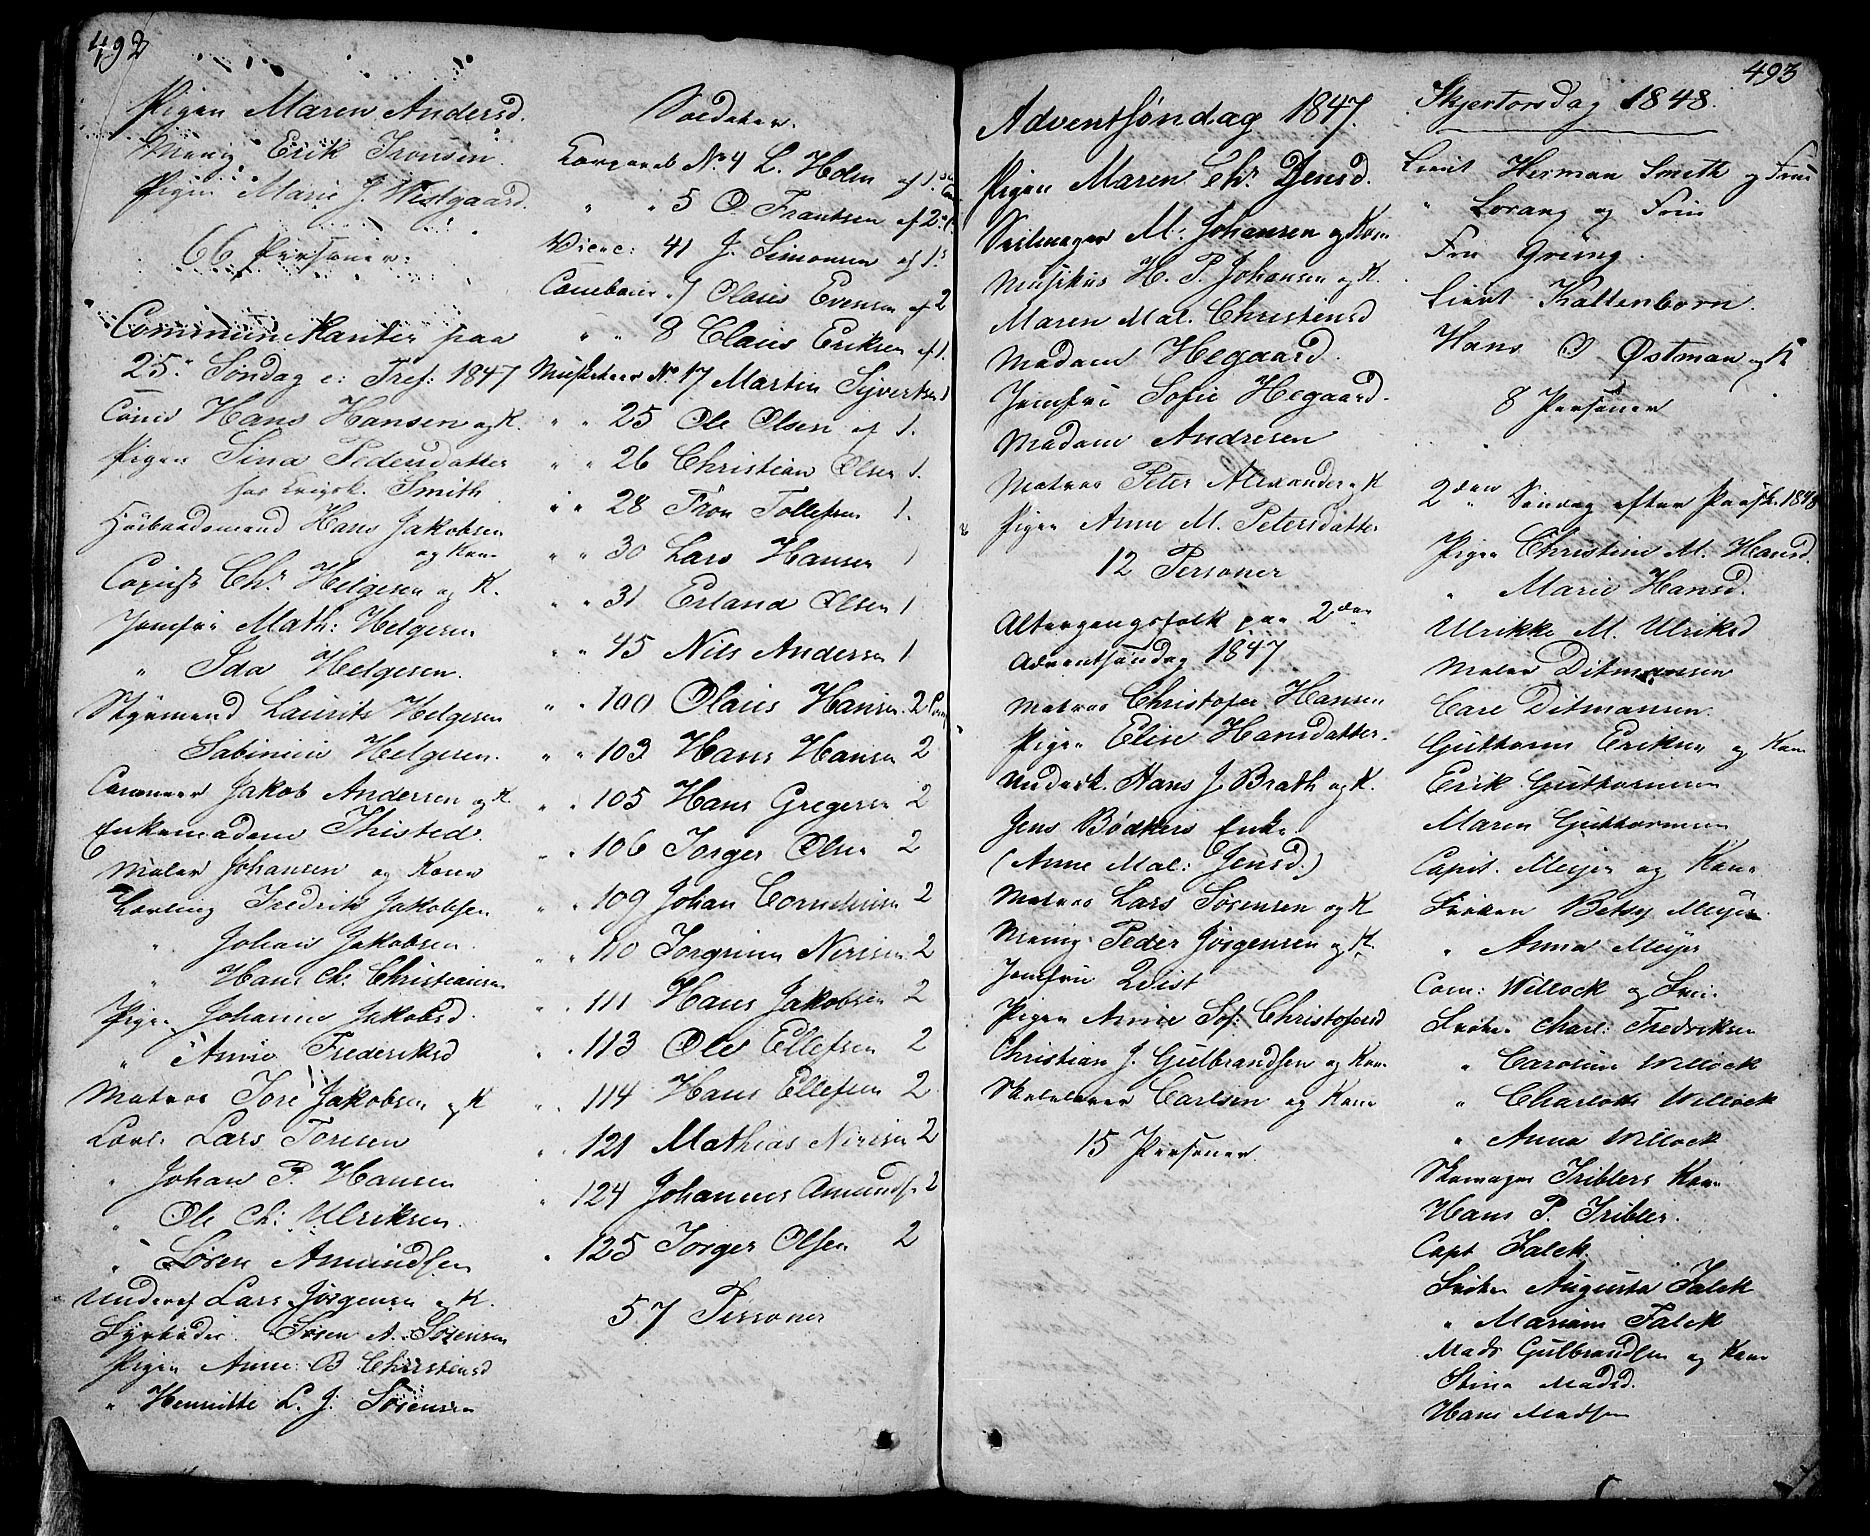 492
Pigen Maren Andersd.
Menig Erik Tronsen.
Pigen Marie J. Westgaard.
66 Personer.
Communikanter paa
25de Søndag e: Tref: 1847
Hans Hansen og K.
Pigen Sina Pedersdatter
hos Krigsk. Smith
Hans Jakobsen
og Kone
Copiist Chr. Helgesen og K.
Jomfru Math: Helgesen
" Ida Helgesen.
Styrmand Laurits Helgesen
Sabinius Helgesen.
Canoneer Jakob Andersen og K.
Enkemadam Thisted.
Maler Johansen og Kone
Lærling Fredrik Jakobsen
" Johan Jakobsen
" Hans Ch. Christiansen
Pigen Johanne Jakobsd.
" Anne Frederiksd
Matros Tore Jakobsen og K
Lærl: Lars Toresen
" Johan P. Hansen
" Ole Ch: Ulriksen.
" Søren Amundsen
Underof Lars Jørgensen og K.
Fyrbøder Søren A. Sørensen
Pigen Anne B Christensd
" Henriette L. J. Sørensen
Soldater.
Corporal No 4 L. Holm af 1ste Com
" " 5 O. Frantsen af 2. C.
Vice: 41 J. Simonsen af 1.
Tambour 7 Olaus Evensen af 2
" " 8 Claus Eriksen af 1.
Musketeer No 17 Martin Syvertsen 1
" " 25 Ole Olsen af 1.
" " 26 Christian Olsen 1.
" " 28 Tron Tollefsen 1.
" " 30 Lars Hansen 1
" " 31 Erland Olsen 1
" " 45 Nils Andersen 1
" " 100 Olaus Hansen 2 Com
" " 103 Hans Hansen 2
" " 105 Hans Gregersen 2
" " 106 Torger Olsen 2
" " 109 Johan Cornelius 2
" " 110 Torgrim Nirisen 2
" " 111 Hans Jakobsen 2
" " 113 Ole Ellefsen 2
" " 114 Hans Ellefsen 2
" " 121 Mathias Nirisen 2
" " 124 Johannes Amunds. 2
" 125 Torger Olsen 2
57 Personer
493
Adventsøndag 1847.
Pigen Maren Chr. Jensd.
Seilmager M. Johansen og Kone
Musikus H. P. Johansen og K.
Maren Mal. Christensd
Madam Hegaard.
Jomfru Sofie Hegaard.
Madam Andresen
Matros Peter Alexander og K
Pigen Anne M. Petersdatter
12 Personer
Altergangsfolk paa 2den
Adventsøndag 1847
Matros Christofer Hansen
Pigen Elise Hansdatter.
Underk. Hans J. Brath og K.
Jens Bødkers Enke
(Anne Mal: Jensd.)
Matros Lars Sørensen og K
Menig Peder Jørgensen og K.
Jomfru Qvist
Pigen Anne Sof: Christofersd
Christian J. Gulbrandsen og Kone
Skolelærer Carlsen og Kone
15 Personer.
Skjertorsdag 1848.
Lieut Herman Smith og Frue
" Lorang og Frue
Fru Grüng.
Lieut Kaltenborn.
Hans O Østman og K
8 Personer
2den Søndag efter Paask. 1848
Pigen Christine M. Hansd.
" Marie Hansd.
Ulrikke M. Ulriksd
Maler Ditmansen
Carl Ditmansen.
Guttorm Eriksen og Kone
Erik Guttormsen
Maren Guttormsen
Capit. Meyer og Kone
Frøken Betsy Meyer.
" Anna Meyer
Com: Willock og Frue
Frøken Charl: Fredriksen
" Caroline Willock
" Charlotte Willock
" Anna Willock
Skomager Triblers Kone
Hans P. Tribler.
Capt Falck.
Frøken Augusta Falck
" Mariane Falck
Mads Gulbrandsen og Kone
Stine Madsd.
Hans Madsen